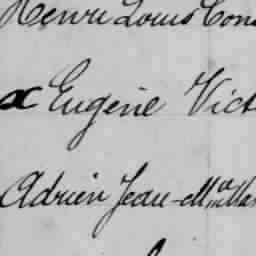 Henri Louis Cons
x Eugène Vict
Adrien Jean-M